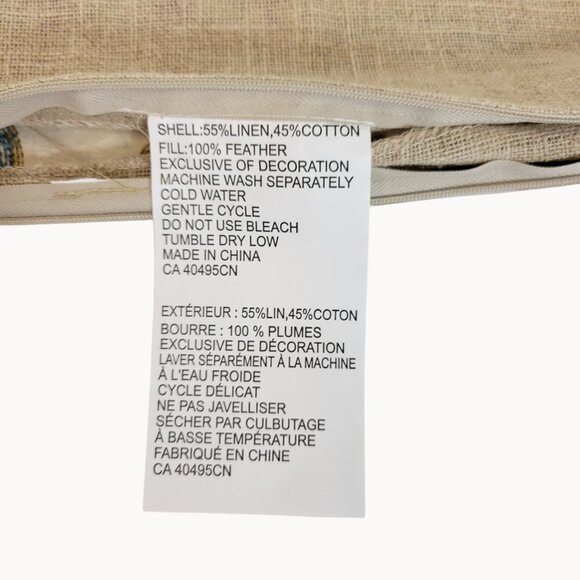 SHELL:55%LINEN,45%COTTON
FILL:100% FEATHER
EXCLUSIVE OF DECORATION
MACHINE WASH SEPARATELY
COLD WATER
GENTLE CYCLE
DO NOT USE BLEACH
TUMBLE DRY LOW
MADE IN CHINA
CA 40495CN
EXTÉRIEUR : 55%LIN,45%COTON
BOURRE : 100 % PLUMES
EXCLUSIVE DE DÉCORATION
LAVER SÉPARÉMENT À LA MACHINE
À L'EAU FROIDE
CYCLE DÉLICAT
NE PAS JAVELLISER
SÉCHER PAR CULBUTAGE
À BASSE TEMPÉRATURE
FABRIQUÉ EN CHINE
CA 40495CN